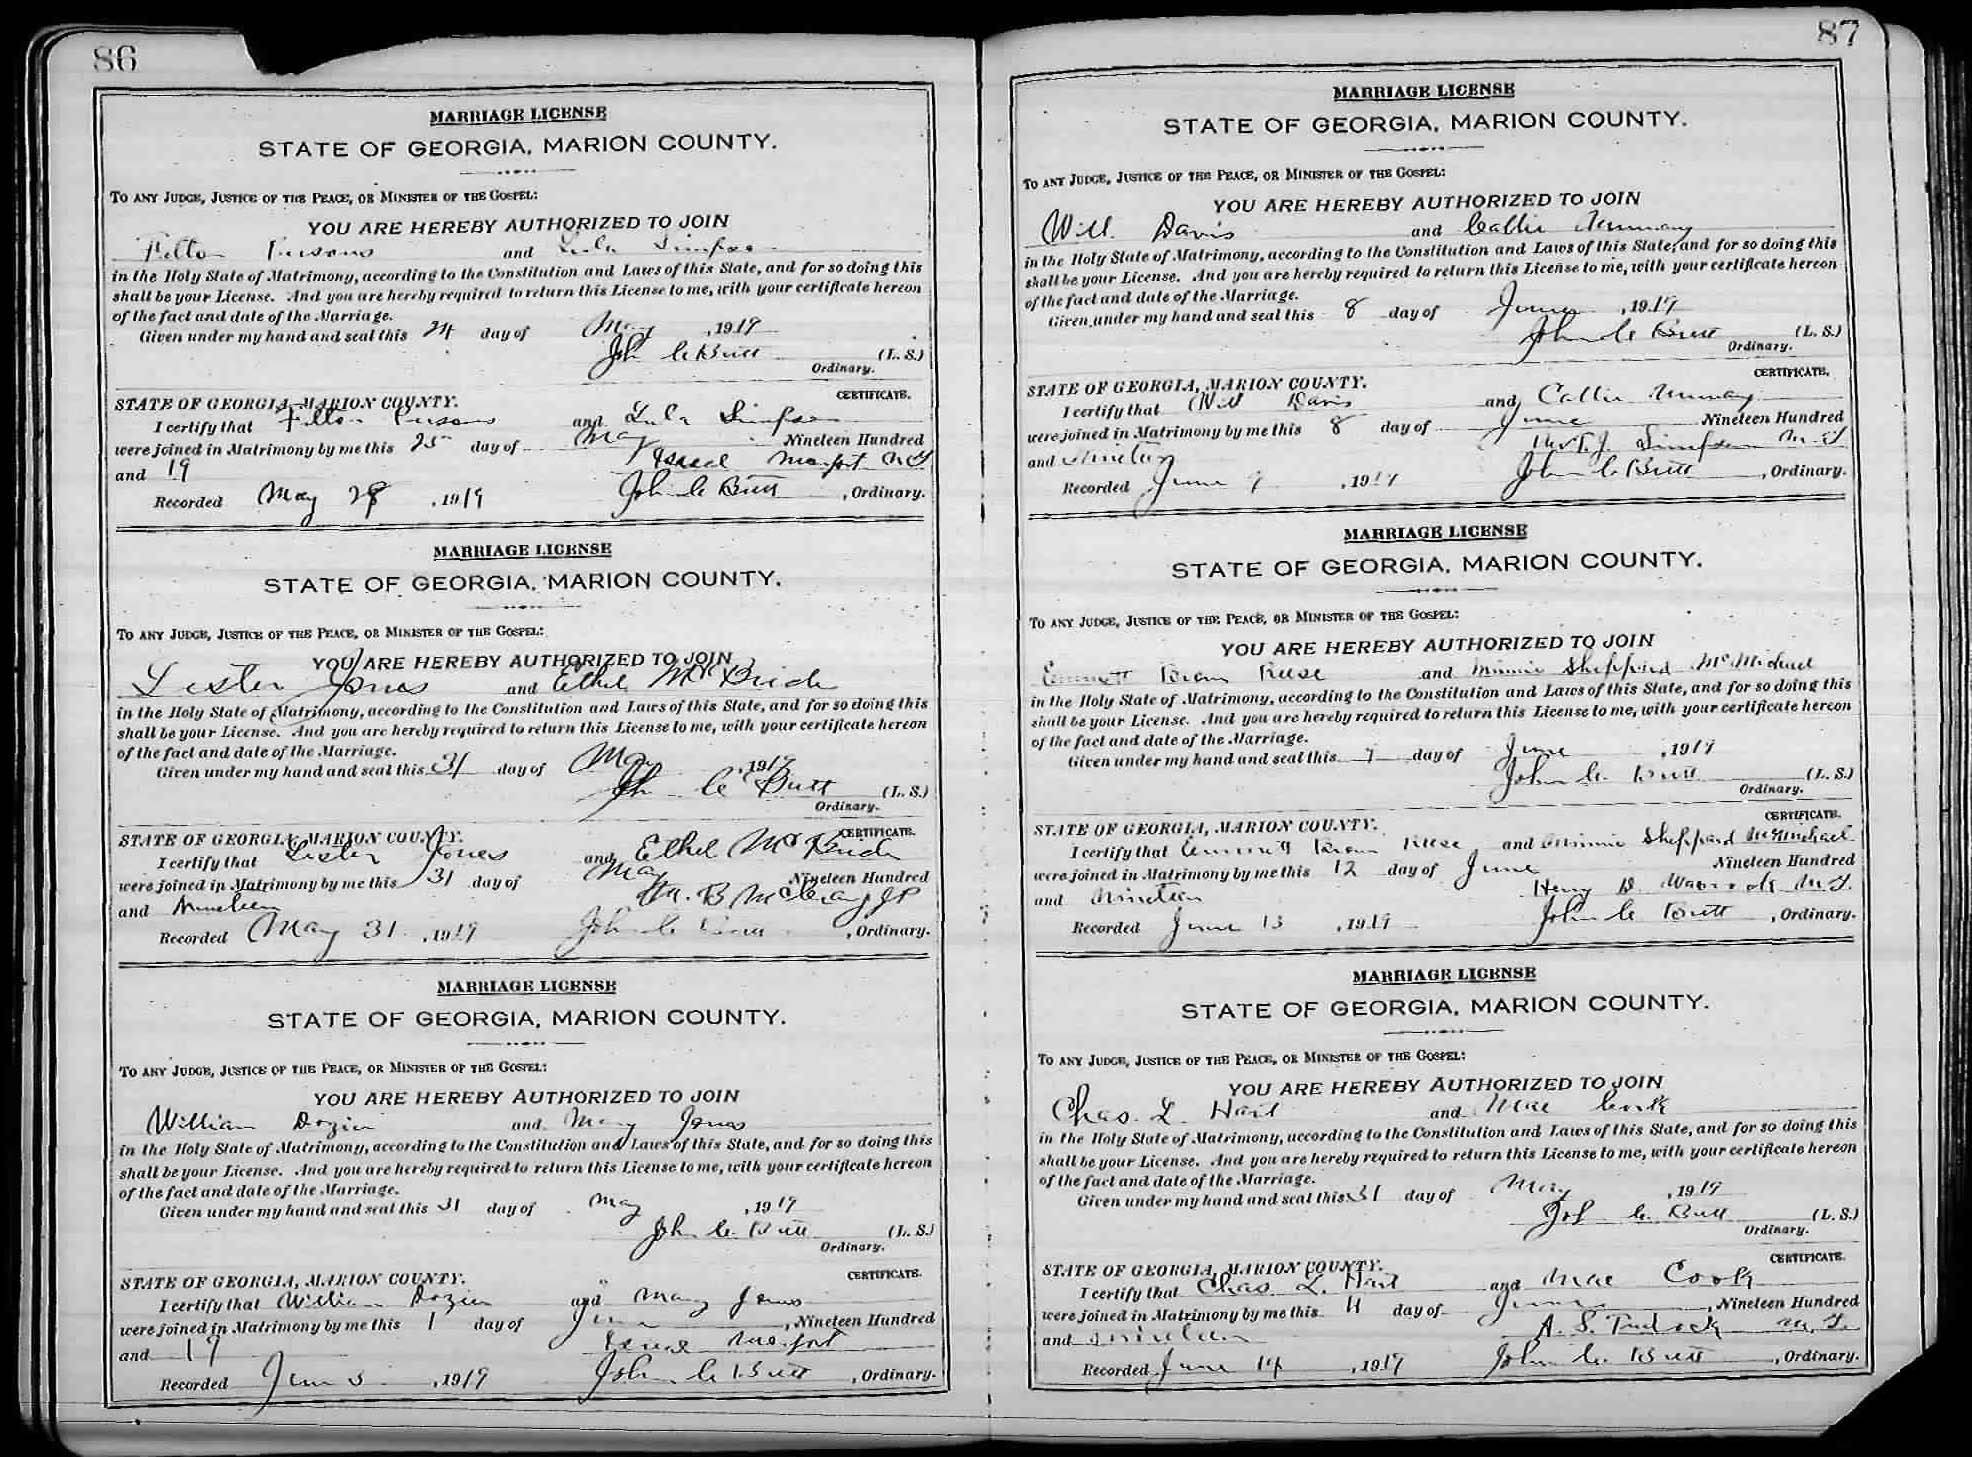 86
MARRIAGE LICENSE
STATE OF GEORGIA, MARION COUNTY.
TO ANY JUDGE, JUSTICE OF THE PEACE, OR MINISTER OF THE GOSPEL:
YOU ARE HEREBY AUTHORIZED TO JOIN
Felton and Lula Simpson
in the Holy State of Matrimony, according to the Constitution and Laws of this State, and for so doing this
shall be your License. And you are hereby required to return this License to me, with your certificate hereon
of the fact and date of the Marriage.
Given under my hand and seal this 24 day of May, 1919
John C Butt (L. S.)
Ordinary.
CERTIFICATE.
STATE OF GEORGIA, MARION COUNTY.
I certify that Felton and Lula Simpson
were joined in Matrimony by me this 25 day of May Nineteen Hundred
and 19 Monfort M G
Recorded May 28, 1919 John C Butt, Ordinary.
MARRIAGE LICENSE
STATE OF GEORGIA, MARION COUNTY.
TO ANY JUDGE, JUSTICE OF THE PEACE, OR MINISTER OF THE GOSPEL:
YOU ARE HEREBY AUTHORIZED TO JOIN
Lester Jones and Ethel McBride
in the Holy State of Matrimony, according to the Constitution and Laws of this State, and for so doing this
shall be your License. And you are hereby required to return this License to me, with your certificate hereon
of the fact and date of the Marriage.
Given under my hand and seal this 31 day of May 1919
Jn C Butt (L. S.)
Ordinary.
CERTIFICATE.
STATE OF GEORGIA, MARION COUNTY.
I certify that Lester Jones and Ethel McBride
were joined in Matrimony by me this 31 day of May Nineteen Hundred
and Nineteen B McCrary JP
Recorded May 31, 1919 John C Butt, Ordinary.
MARRIAGE LICENSE
STATE OF GEORGIA, MARION COUNTY.
TO ANY JUDGE, JUSTICE OF THE PEACE, OR MINISTER OF THE GOSPEL:
YOU ARE HEREBY AUTHORIZED TO JOIN
William Dozier and Mary Jones
in the Holy State of Matrimony, according to the Constitution and Laws of this State, and for so doing this
shall be your License. And you are hereby required to return this License to me, with your certificate hereon
of the fact and date of the Marriage.
Given under my hand and seal this 31 day of May, 1919
John C. Butt (L. S.)
Ordinary.
CERTIFICATE.
STATE OF GEORGIA, MARION COUNTY.
I certify that William Dozier and Mary Jones
were joined in Matrimony by me this 1 day of June, Nineteen Hundred
and 19 Monfort
Recorded June 3, 1919 John C Butt, Ordinary.
87
MARRIAGE LICENSE
STATE OF GEORGIA, MARION COUNTY.
TO ANY JUDGE, JUSTICE OF THE PEACE, OR MINISTER OF THE GOSPEL:
YOU ARE HEREBY AUTHORIZED TO JOIN
Will Davis and Callie
in the Holy State of Matrimony, according to the Constitution and Laws of this State, and for so doing this
shall be your License. And you are hereby required to return this License to me, with your certificate hereon
of the fact and date of the Marriage.
Given under my hand and seal this 8 day of June, 1919
John C Butt (L. S.)
Ordinary.
CERTIFICATE.
STATE OF GEORGIA, MARION COUNTY.
I certify that Will Davis and Callie
were joined in Matrimony by me this 8 day of June Nineteen Hundred
and Nineteen Simpson M G
Recorded June 9, 1919 John C Butt, Ordinary.
MARRIAGE LICENSE
STATE OF GEORGIA, MARION COUNTY.
TO ANY JUDGE, JUSTICE OF THE PEACE, OR MINISTER OF THE GOSPEL:
YOU ARE HEREBY AUTHORIZED TO JOIN
Emmett Reese and Minnie Sheppard McMichael
in the Holy State of Matrimony, according to the Constitution and Laws of this State, and for so doing this
shall be your License. And you are hereby required to return this License to me, with your certificate hereon
of the fact and date of the Marriage.
Given under my hand and seal this 7 day of June, 1919
John C. Butt (L. S.)
Ordinary.
CERTIFICATE.
STATE OF GEORGIA, MARION COUNTY.
I certify that Emmett Reese and Minnie Sheppard McMichael
were joined in Matrimony by me this 12 day of June Nineteen Hundred
and Nineteen Henry D. M. G.
Recorded June 13, 1919 John C Butt, Ordinary.
MARRIAGE LICENSE
STATE OF GEORGIA, MARION COUNTY.
TO ANY JUDGE, JUSTICE OF THE PEACE, OR MINISTER OF THE GOSPEL:
YOU ARE HEREBY AUTHORIZED TO JOIN
Chas. L. Hart and Mae Cook
in the Holy State of Matrimony, according to the Constitution and Laws of this State, and for so doing this
shall be your License. And you are hereby required to return this License to me, with your certificate hereon
of the fact and date of the Marriage.
Given under my hand and seal this 31 day of May, 1919
Joh C. Butt (L. S.)
Ordinary.
CERTIFICATE.
STATE OF GEORGIA, MARION COUNTY.
I certify that Chas. L. Hart and Mae Cook
were joined in Matrimony by me this day of June, Nineteen Hundred
and nineteen A. S. M. G.
Recorded June 14, 1919 John C. Butt, Ordinary.